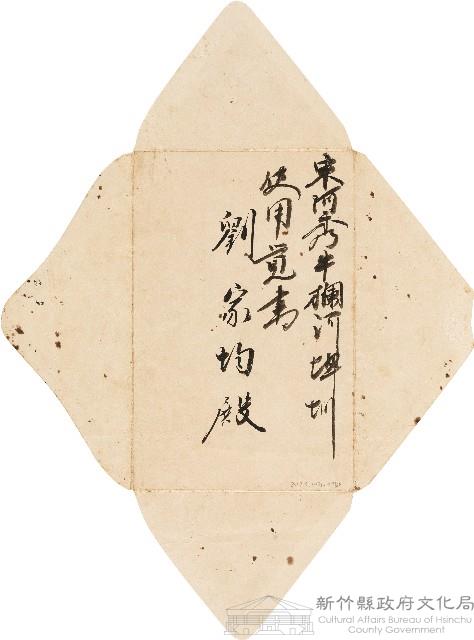 東河秀牛欄河埤圳
使用覚書
劉家均殿
新竹縣政府文化局
Cultural Affairs Bureau of Hsinchu
County Government